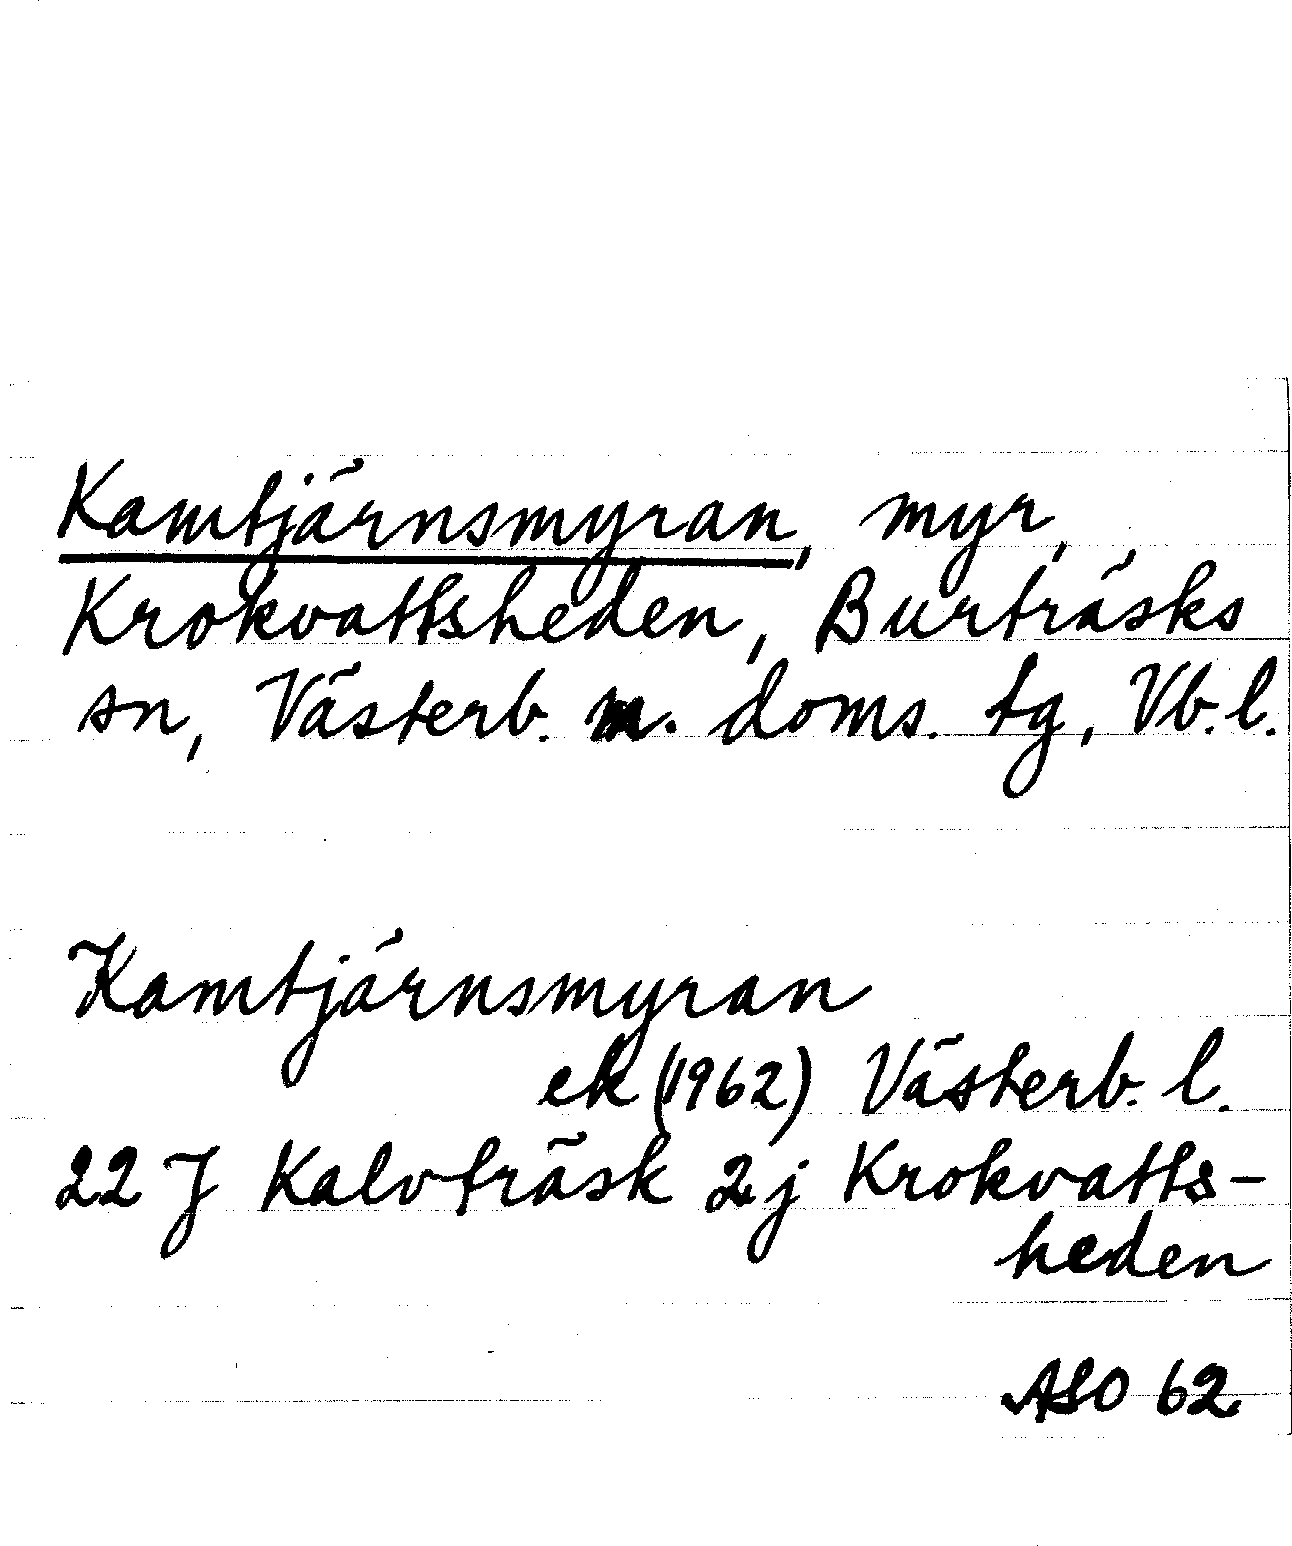 Kamtjärnsmyran, myr,
Krokvattsheden, Burträsks
sn, Västerb. m. doms. tg, Vb. l.
Kamtjärnsmyran
ek (1962) Västerb. l.
22 J Kalvträsk 2 j Krokvatts-
heden
ASO 62